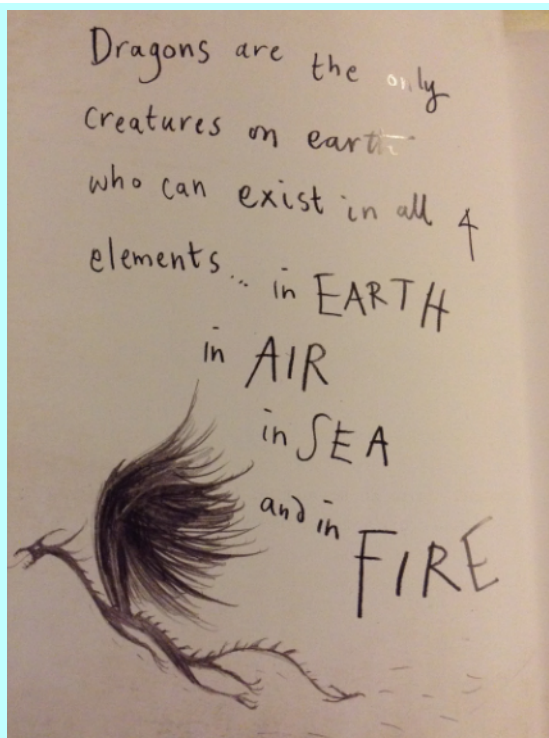 Dragons are the only
creatures on earth
who can exist in all 4
elements... in EARTH
in AIR
in SEA
and in
FIRE